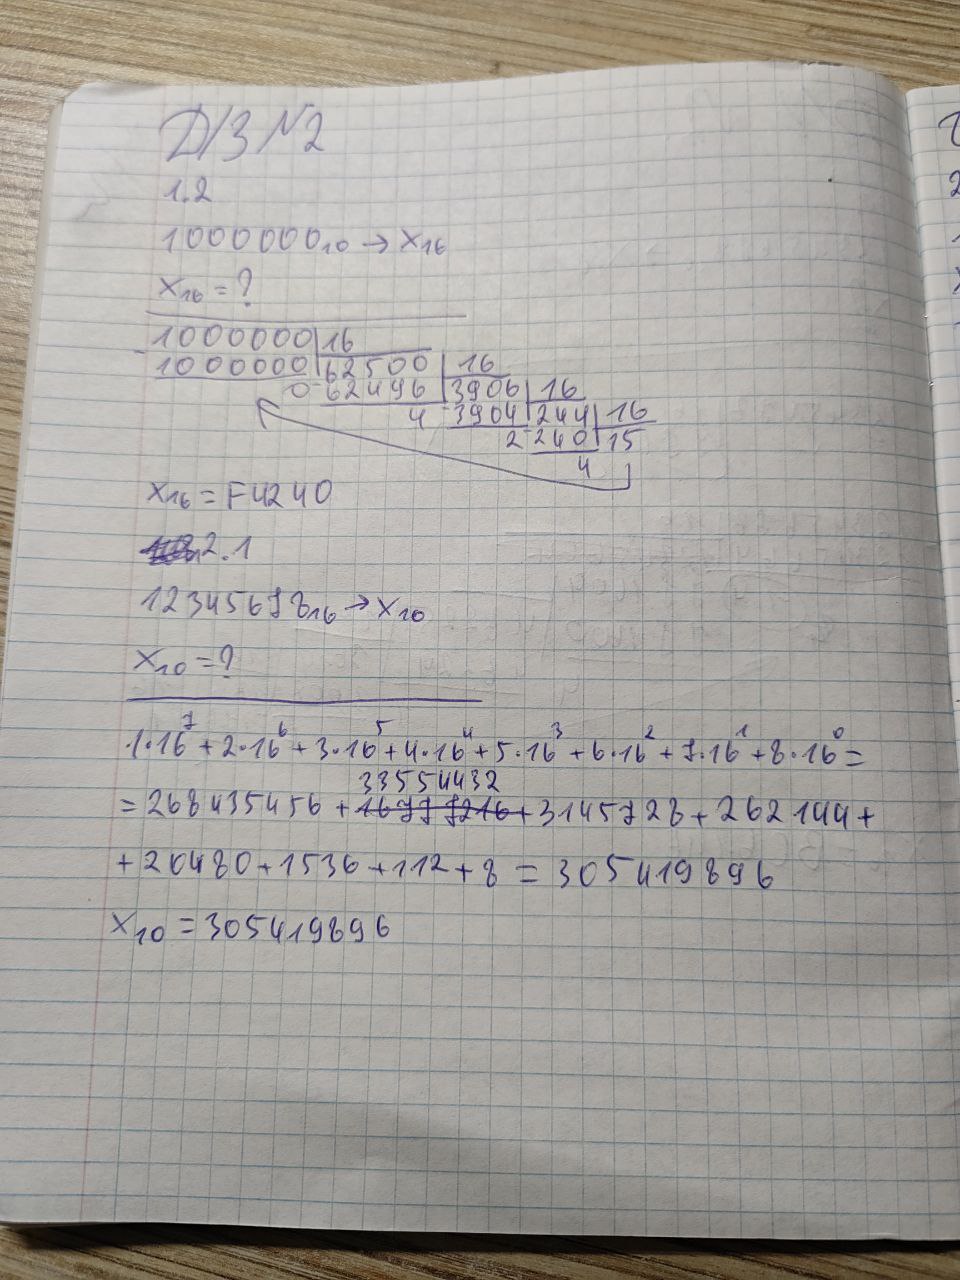 Д/З №2
1.2
1000000₁₀ → X₁₆
X₁₆ = ?
1000000 | 16
- 1000000 | 62500 | 16
0 - 62496 | 3906 | 16
4 - 3904 | 244 | 16
2 - 240 | 15
4
X₁₆ = F4240
2.1
12345678₁₆ → X₁₀
X₁₀ = ?
1·16⁷ + 2·16⁶ + 3·16⁵ + 4·16⁴ + 5·16³ + 6·16² + 7·16¹ + 8·16⁰ =
33554432
= 268435456 + 16777216 + 3145728 + 262144 +
+ 20480 + 1536 + 112 + 8 = 305419896
X₁₀ = 305419896